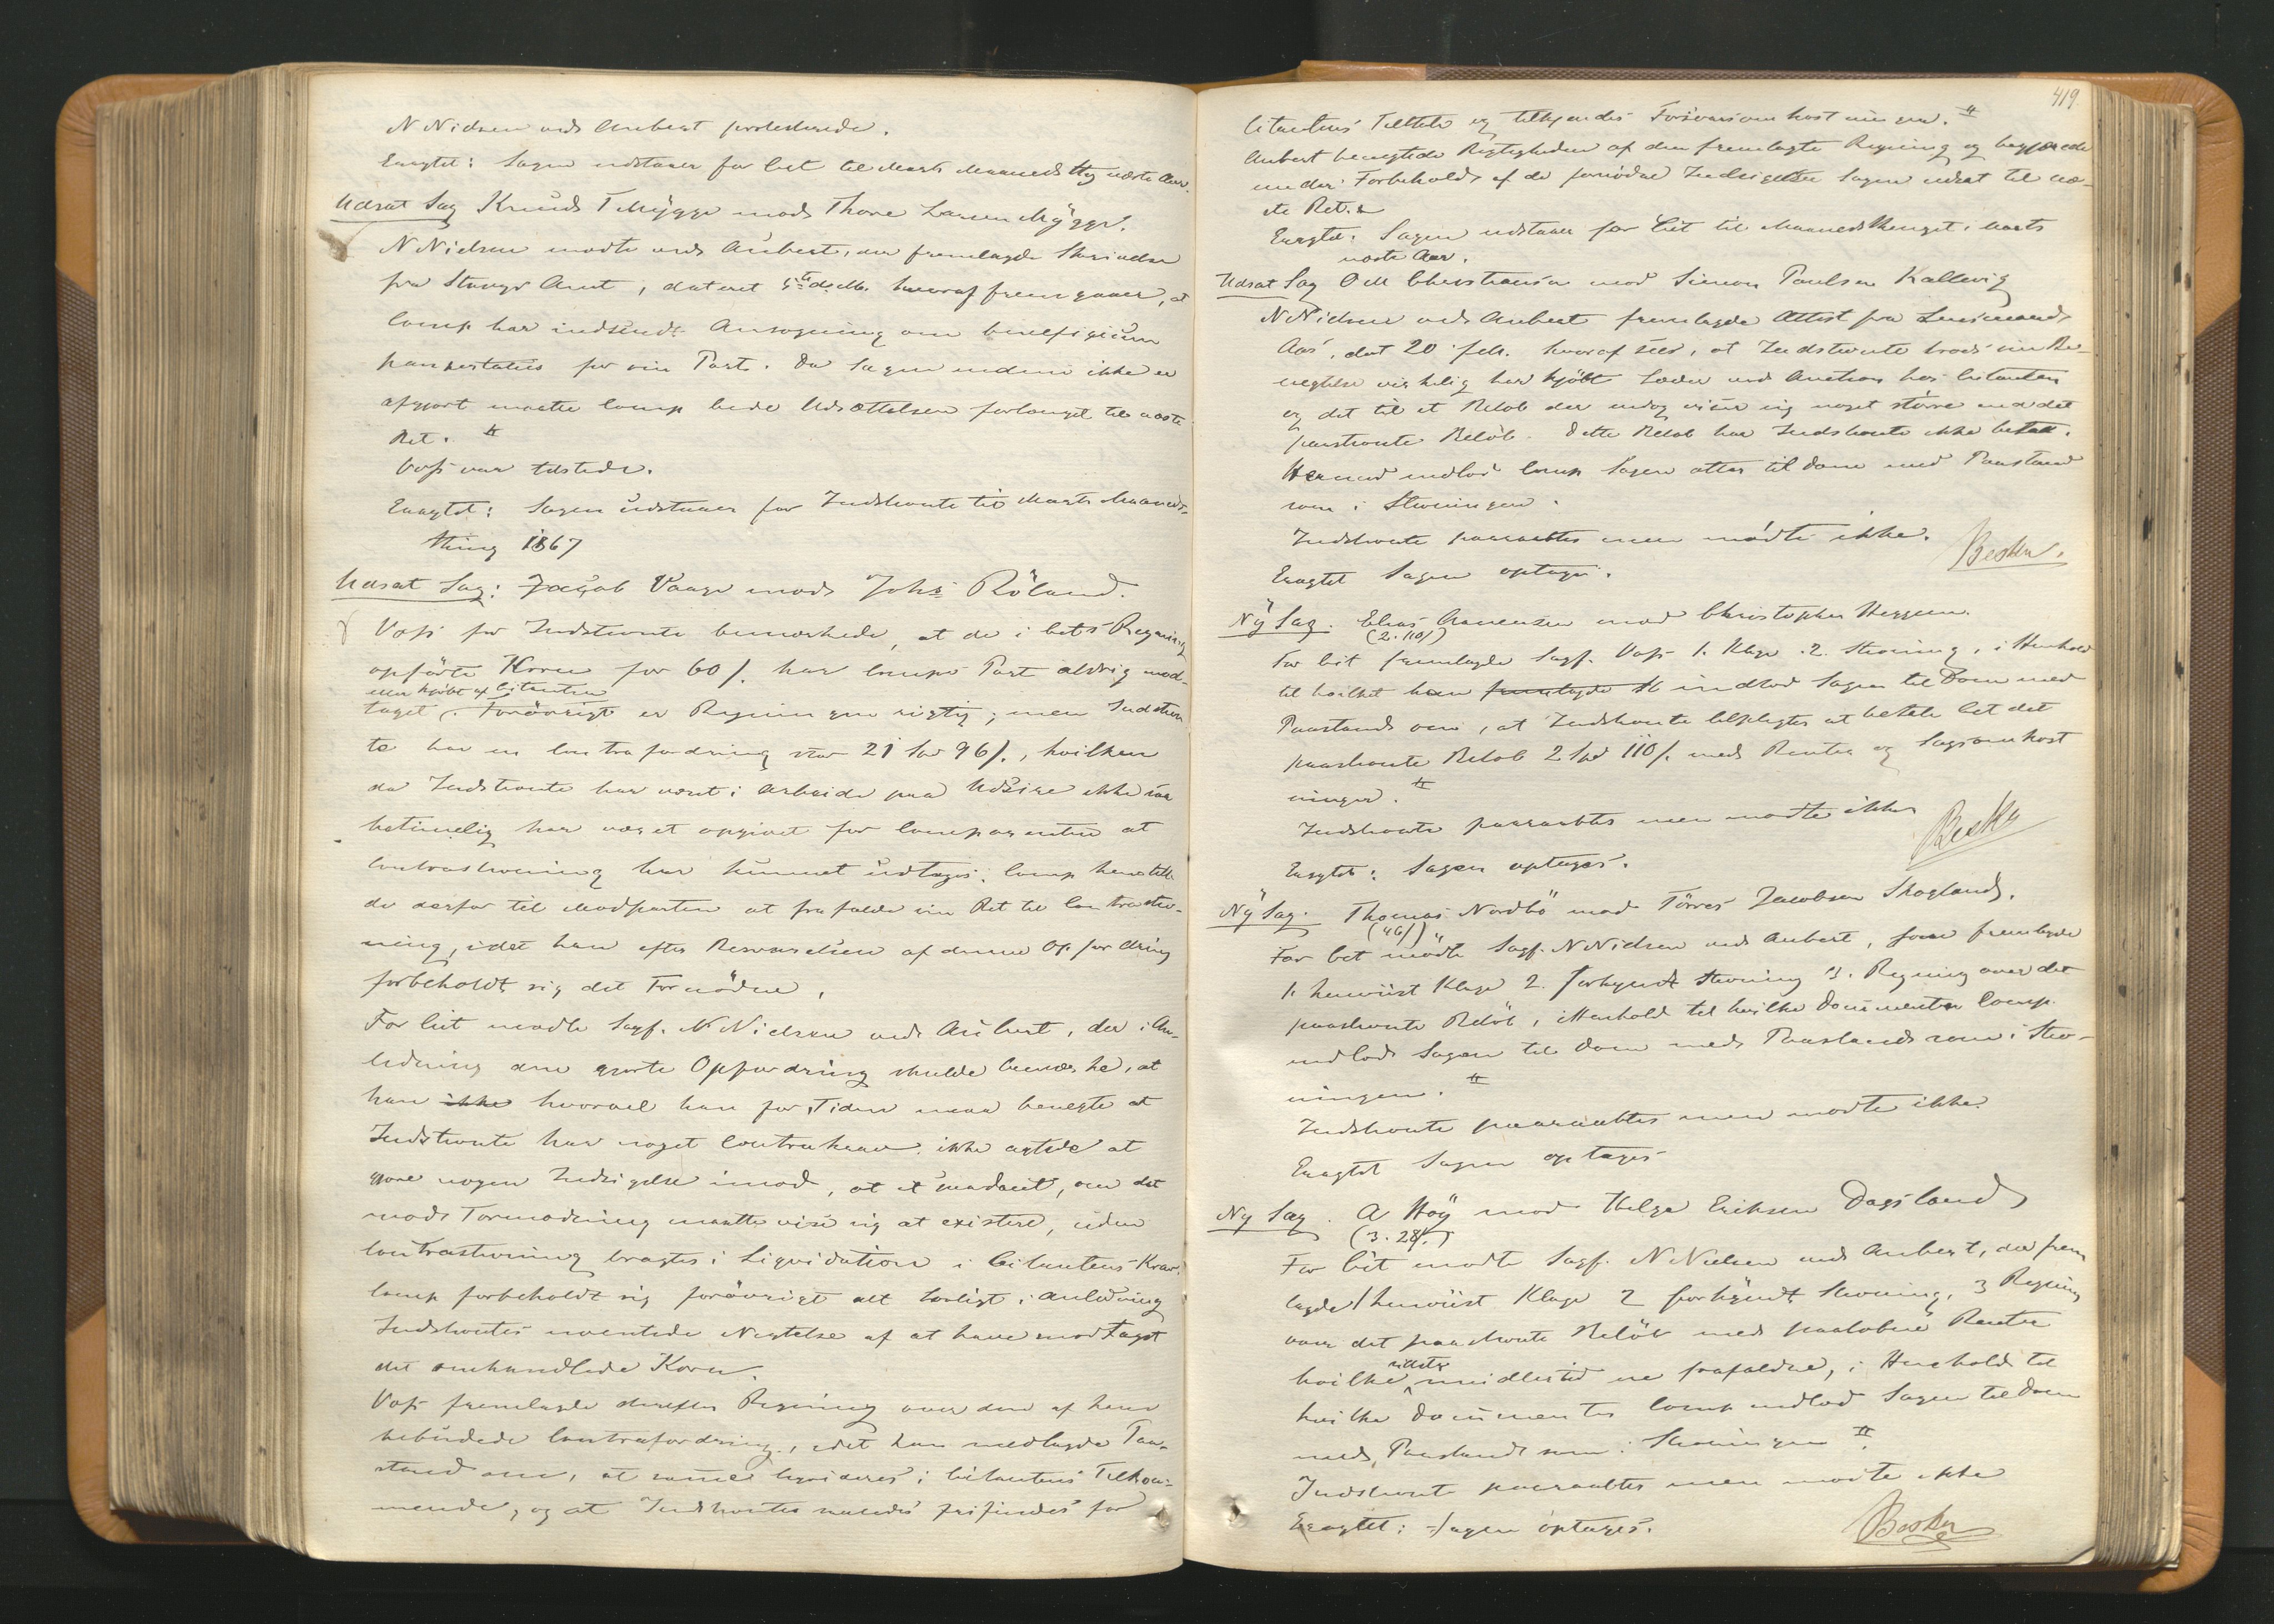 N Nielsen ved Aubert protesterede.
Eragtet: Sagen udstaaer for Cit til Marts Maaneds thg næste Aar.
Udsat Sag Knud T Mÿgge mod Thore Larsen Mÿgge.
N Nielsen mødte ved Aubert, der fremlagde Skrivelse
fra Stavgr Amt, dateret 5te ds Mb. hvoraf fremgaaer, at
Comp har indsendt Ansøgning om beneficium
paupertatis for sin Part. Da Sagen endnu ikke er
afgjort maatte Comp bede Udsættelsen forlænget til næste
Ret. #
Voss var tilstede.
Eragtet: Sagen udstaaer for Indstevnte til Marts Maaneds-
thing 1867
Udsat Sag: Jacob Vaage mod Johs Röland.
Voss for Indstevnte bemærkede, at de i Cits Regning
opførte Korn for 60 s. har Comps Part aldrig mod-
eller kjøbt af Citanten
taget. Forövrigt er Regningen rigtig; men Indstevn
te har en Contrafordring stor 21 Spd 96 s., hvilken
da Indstevnte har været i Arbeide paa Udsire ikke saa
betimelig har været opgivet for Comparenten at
Contrastevning har kunnet udtages. Comp henstill
de derfor til Modparten at frafalde sin Ret til Contrastev-
ning, idet han efter Besvarelsen af denne Opfordring
forbeholdt sig det Fornødne.
For Cit mødte Sagf. N Nielsen ved Aubert, der i An-
ledning den gjorte Opfordring skulde bemærke, at
han ikke hvorvel han for Tiden maa benegte at
Indstevnte har noget Contrakrav, ikke agtede at
gjøre nogen Indsigelse imod, at et saadant, om det
mod Formodning maatte vise sig at existere, uden
Contrastevning bragtes i Liqvidation i Citantens Krav.
Comp forbeholdt sig forövrigt alt Lovligt i Anledning
Indstevntes uventede Negtelse af at have modtaget
det omhandlede Korn.
Voss fremlagde derefter Regning over den af ham
bebudede Contrafordring, idet han nedlagde Paa-
stand om, at samme liqvideres i Citantens Tilkom-
mende, og at Indstevntes saaledes frifindes for
419.
Citantens Tiltale og tilkjendes Forsvarsomkostninger. #
Aubert benegtede Rigtigheden af den fremlagte Regning og begjærede
under Forbehold af de fornødne Indsigelser Sagen udsat til næ-
ste Ret. #
Eragtet: Sagen udstaaer for Cit til Maanedsthinget i Marts
næste Aar.
Udsat Sag O M Christensen mod Simon Paulsen Kallevig
N Nielsen ved Aubert fremlagde Attest fra Lensmand
Aas, dat 20 feb. hvoraf sees, at Indstevnte trods sin Be-
negtelse virkelig har kjøbt Læder ved Auction hos Citanten
og det til et Beløb der endog viser sig noget større end det
paastevnte Beløb. Dette Beløb har Indstevnte ikke betalt.
Hermed indlod Comp Sagen atter til Dom med Paastand
som i Stevningen.
Indstevnte paaraabtes men mødte ikke.
Eragtet Sagen optages.
Beskr.
Nÿ Sag. Elias Aanensen mod Christopher Heggem.
(2. 110 s)
For Cit fremlagde Sagf. Voss 1. Klage 2. Stevning, i Henhold
til hvilket han fremlagde St indlod Sagen til Dom med
Paastand om, at Indstevnte tilpligtes at betale Cit det
paastevnte Beløb 2 Spd 110 s. med Renter og Sagsomkost
ninger. #
Indstevnte paaraabtes men mødte ikke
Beskr
Eragtet: Sagen optages.
Nÿ Sag. Thomas Nordbö mod Törres Jacobsen Skogland.
(46 s)
For Cit mödte Sagf. N Nielsen ved Aubert, som fremlagde
1. henviist Klage 2. forkyndt Stevning 3. Regning over det
paastevnte Beløb, i Henhold til hvilke Documenter Comp.
indlod Sagen til Dom med Paastand som i Stev-
ningen. #
Indstevnte paaraabtes men mødte ikke.
Eragtet Sagen optages
Ny Sag. A Høy mod Helge Eriksen Dagsland
(3. 28 s.)
For Cit mødte Sagf. N Nielsen ved Aubert, der frem
lagde 1 henviist Klage 2 forkyndt Stevning, 3 Regning
over det paastevnte Beløb med paaløbne Renter
sidste
hvilke imidlertid ere frafaldne, i Henhold til
hvilke Documenter Comp indlod Sagen til Dom
med Paastand som i Stevningen #.
Indstevnte paaraabtes men mødte ikke
Eragtet: Sagen optages.
Beskr